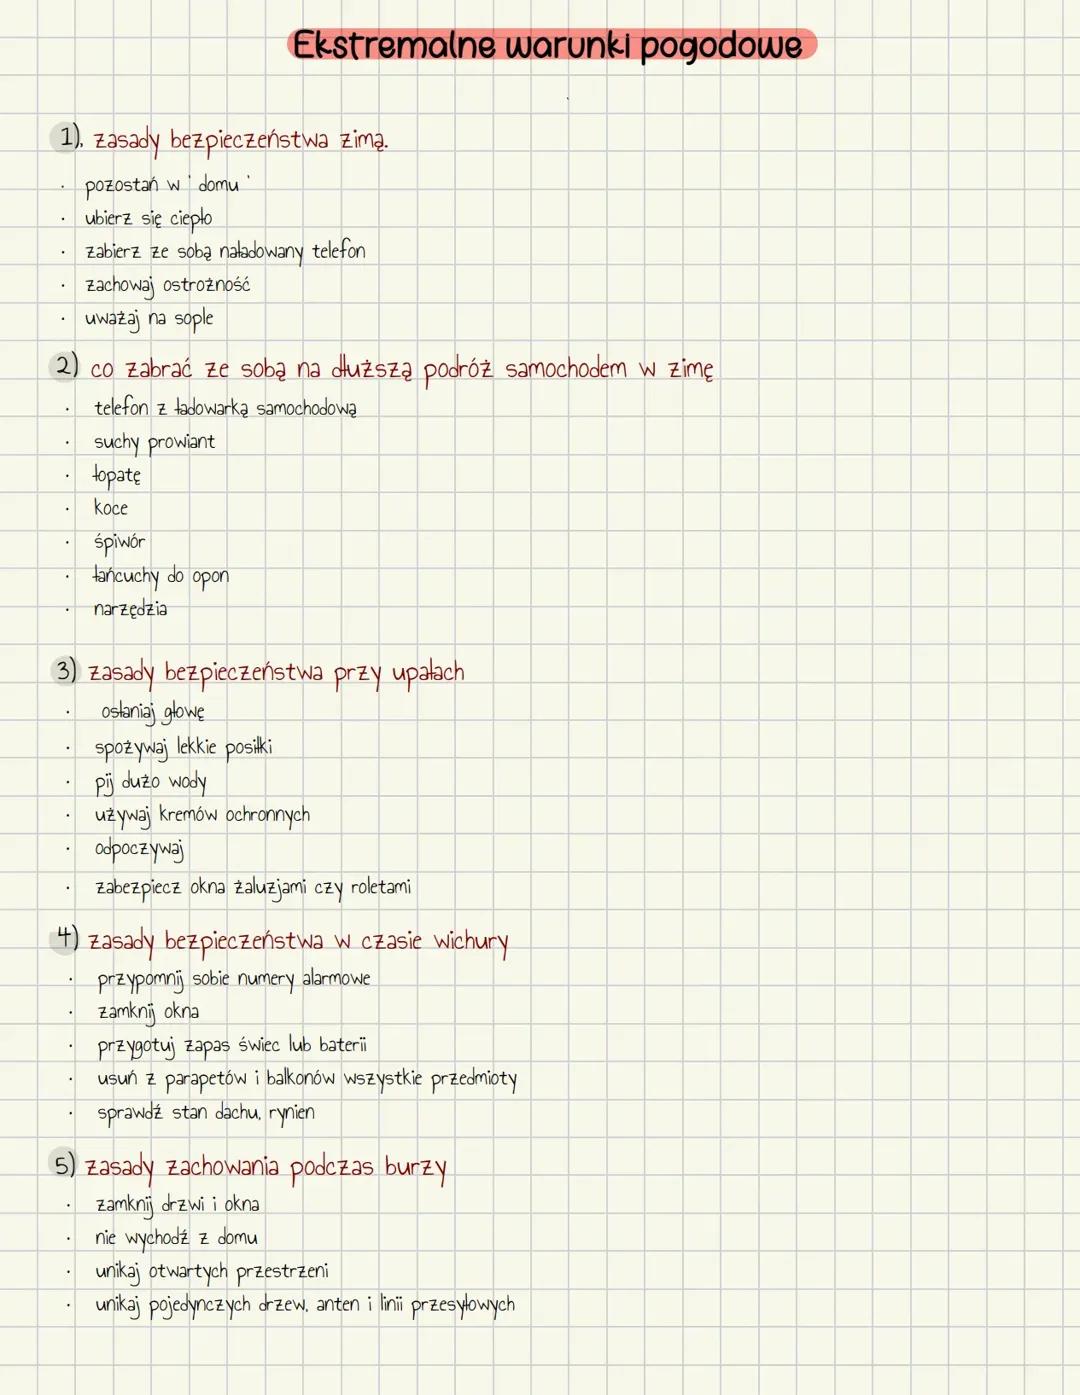 Ekstremalne warunki pogodowe
1). zasady bezpieczeństwa zimą.
· pozostań w ' domu '
· ubierz się ciepło
· zabierz ze sobą naładowany telefon
· zachowaj ostrożność
· uważaj na sople
2) co zabrać ze sobą na dłuższą podróż samochodem w zimę
· telefon z ładowarką samochodową
· suchy prowiant
· łopatę
· koce
· śpiwór
· łańcuchy do opon
· narzędzia
3) zasady bezpieczeństwa przy upałach
· osłaniaj głowę
· spożywaj lekkie posiłki
· pij dużo wody
· używaj kremów ochronnych
· odpoczywaj
· zabezpiecz okna żaluzjami czy roletami
4) zasady bezpieczeństwa w czasie wichury
· przypomnij sobie numery alarmowe
· zamknij okna
· przygotuj zapas świec lub baterii
· usuń z parapetów i balkonów wszystkie przedmioty
· sprawdź stan dachu, rynien
5) zasady zachowania podczas burzy
· zamknij drzwi i okna
· nie wychodź z domu
· unikaj otwartych przestrzeni
· unikaj pojedynczych drzew, anten i linii przesyłowych